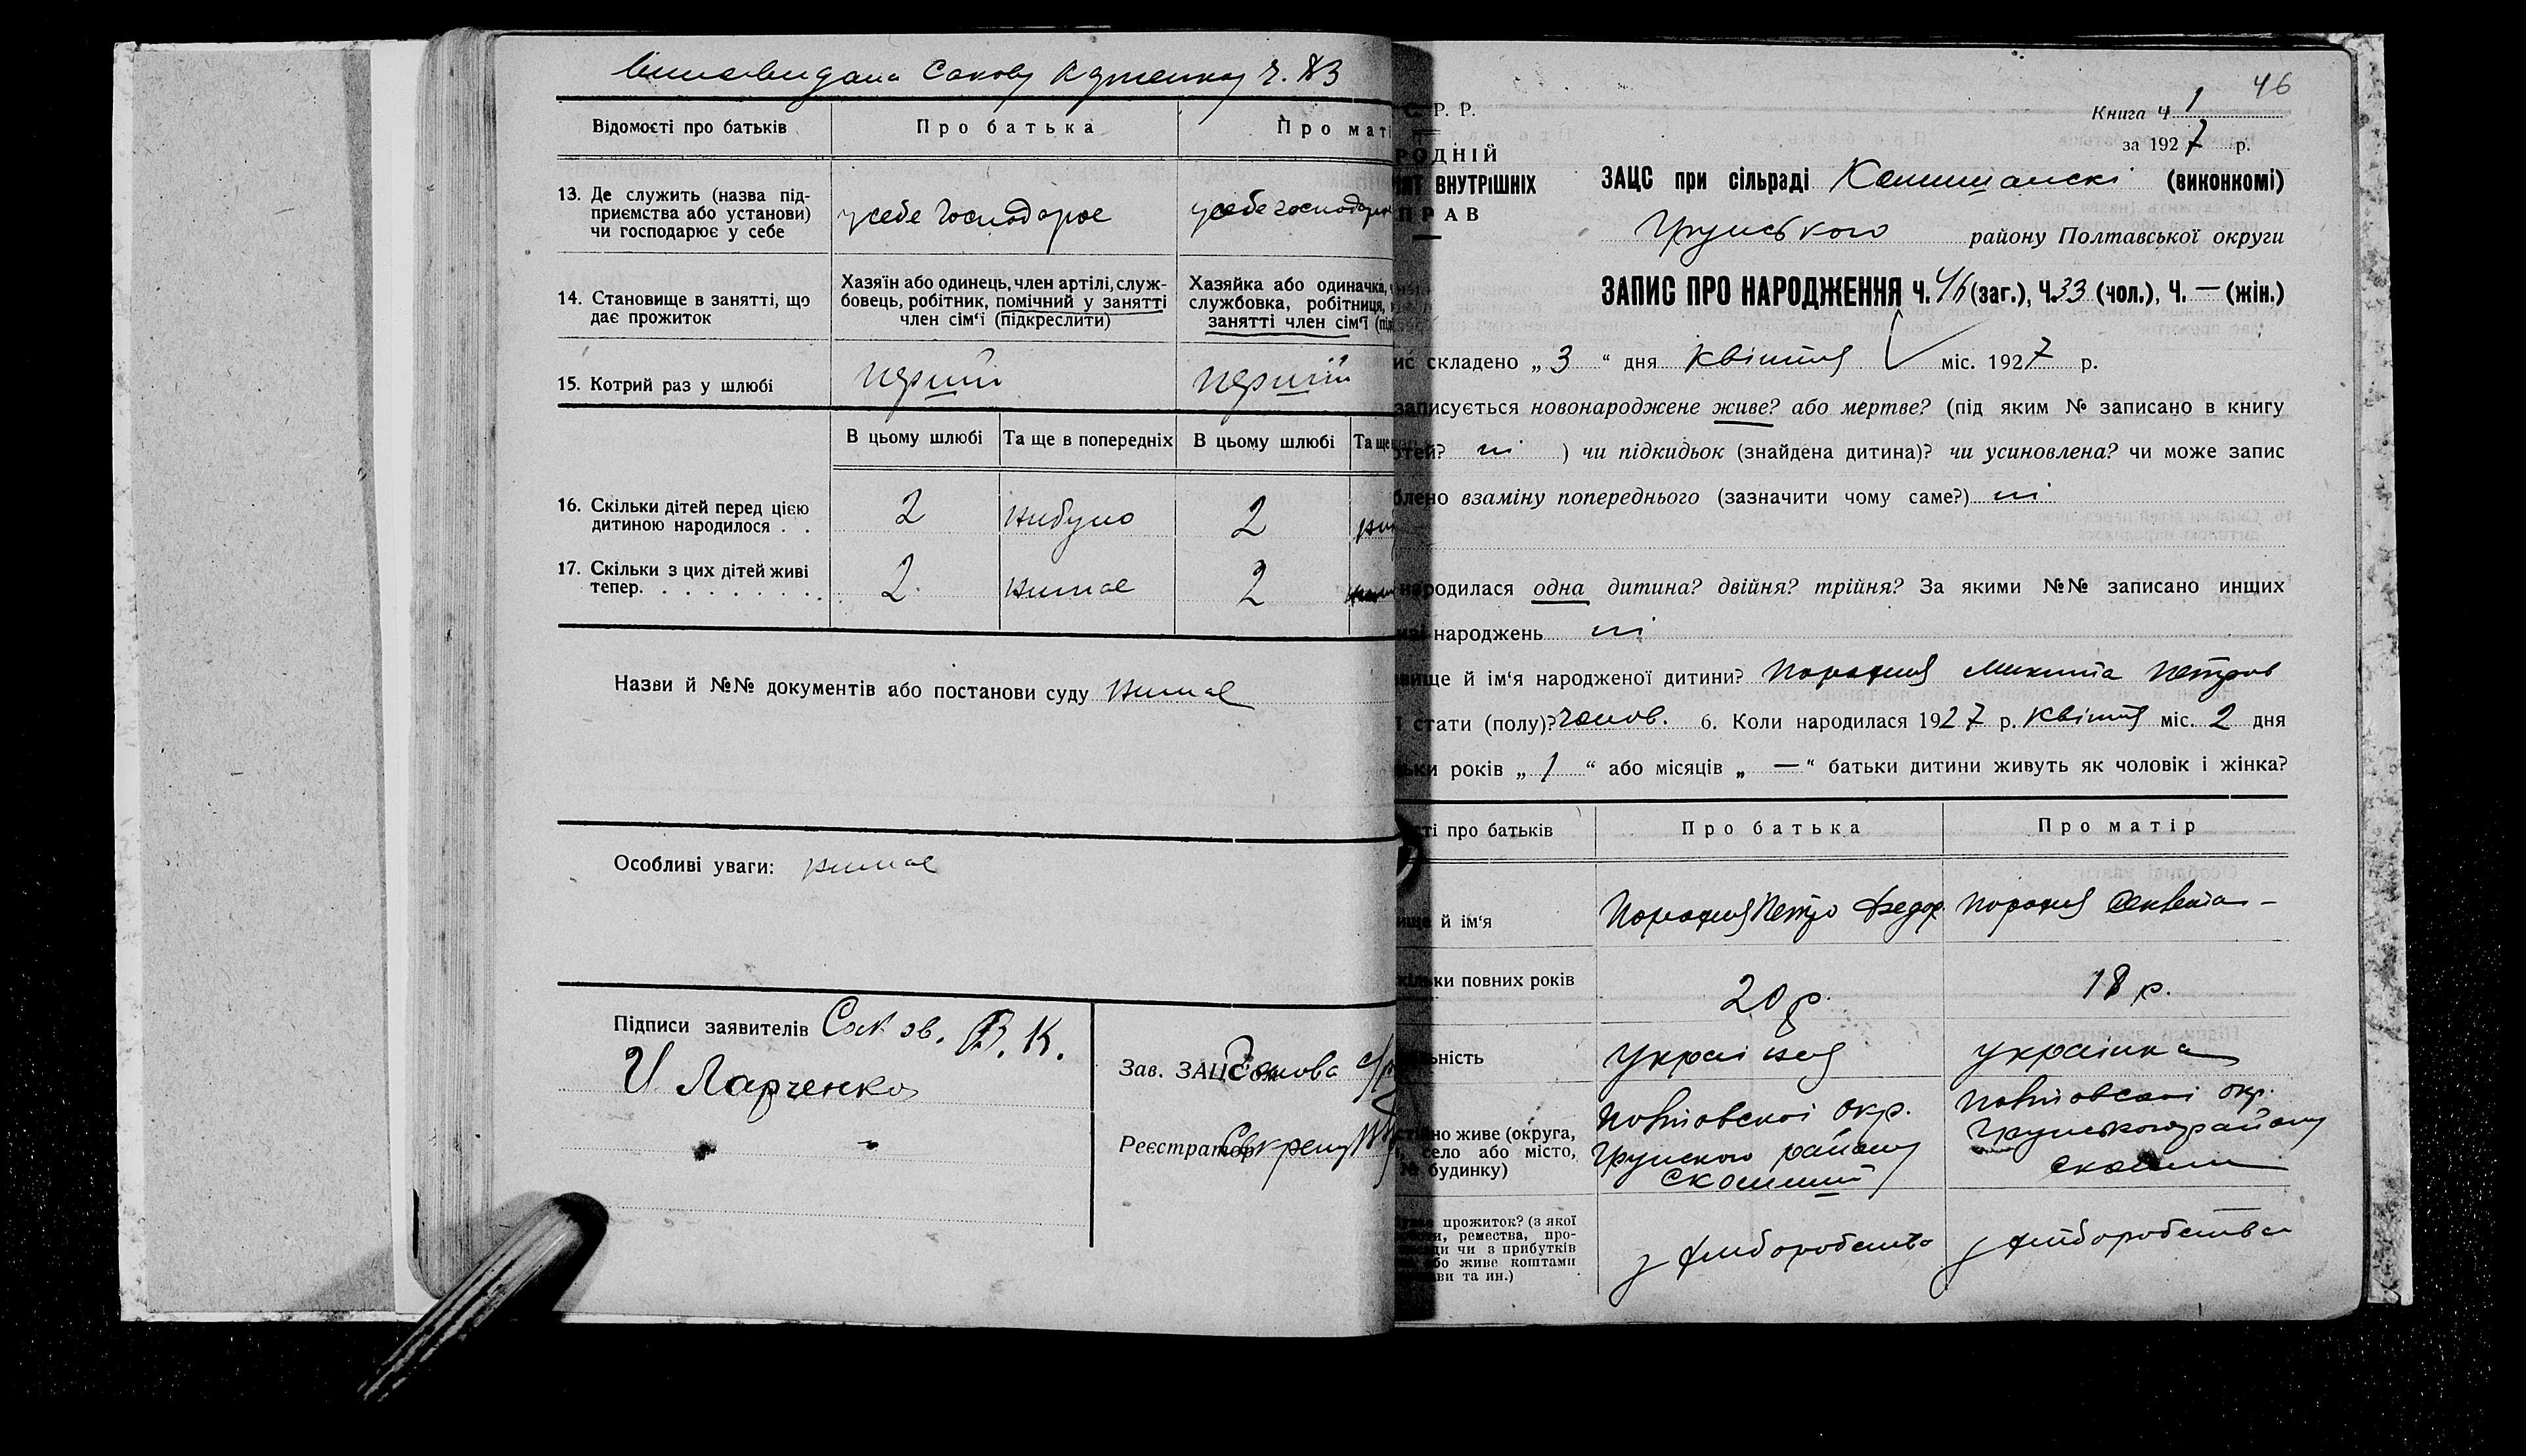 Відомості про батьків
Про батька
Про маті
13. Де служить (назва під-
приємства або установи)
чи господарює у себе
у себе господарює
у себе господарює
14. Становище в занятті, що
дає прожиток
Хазяїн або одинець, член артілі, служ-
бовець, робітник, помічний у занятті
член сім‘ї (підкреслити)
Хазяйка або одиначка,
службовка, робітниця,
занятті член сім‘ї (під
15. Котрий раз у шлюбі
перший
перший
В цьому шлюбі
Та ще в попередніх
В цьому шлюбі
Та ще
16. Скільки дітей перед цією
дитиною народилося . .
2
небуло
2
17. Скільки з цих дітей живі
тепер. . . . . . . .
2
немає
2
Назви й №№ документів або постанови суду немає
Особливі уваги: немає
Підписи заявителів
И Ларченко
Зав. ЗАЦС‘ом Голова
Реєстратор Секрет
46
С. Р. Р.
РОДНІЙ
ВНУТРІШНІХ
ПРАВ
Книга ч 1
за 1927 р.
ЗАЦС при сільраді (виконкомі)
Грунського району Полтавської округи
ЗАПИС ПРО НАРОДЖЕННЯ Ч. 46 (заг.), Ч. 33 (чол.), Ч. — (жін.)
складено „ 3 “ дня квітня міс. 1927 р.
записується новонароджене живе? або мертве? (під яким № записано в книгу
ні ) чи підкидьок (знайдена дитина)? чи усиновлена? чи може запис
взаміну попереднього (зазначити чому саме?) ні
народилася одна дитина? двійня? трійня? За якими №№ записано инших
народжень ні
й ім‘я народженої дитини? Микита Петров
стати (полу)? чолов. 6. Коли народилася 1927 р. квітня міс. 2 дня
років „ 1 “ або місяців „ — “ батьки дитини живуть як чоловік і жінка?
про батьків
Про батька
Про матір
й ім‘я
Петро Федор.
повних років
20 р.
18 р.
українец
українка
живе (округа,
село або місто,
будинку)
Полтавскої окр.
Грунского району
Полтавскої окр.
Грунського району
прожиток? (з якої
ремества, про-
чи з прибутків
живе коштами
та ин.)
з хлиборобства
з хлиборобства